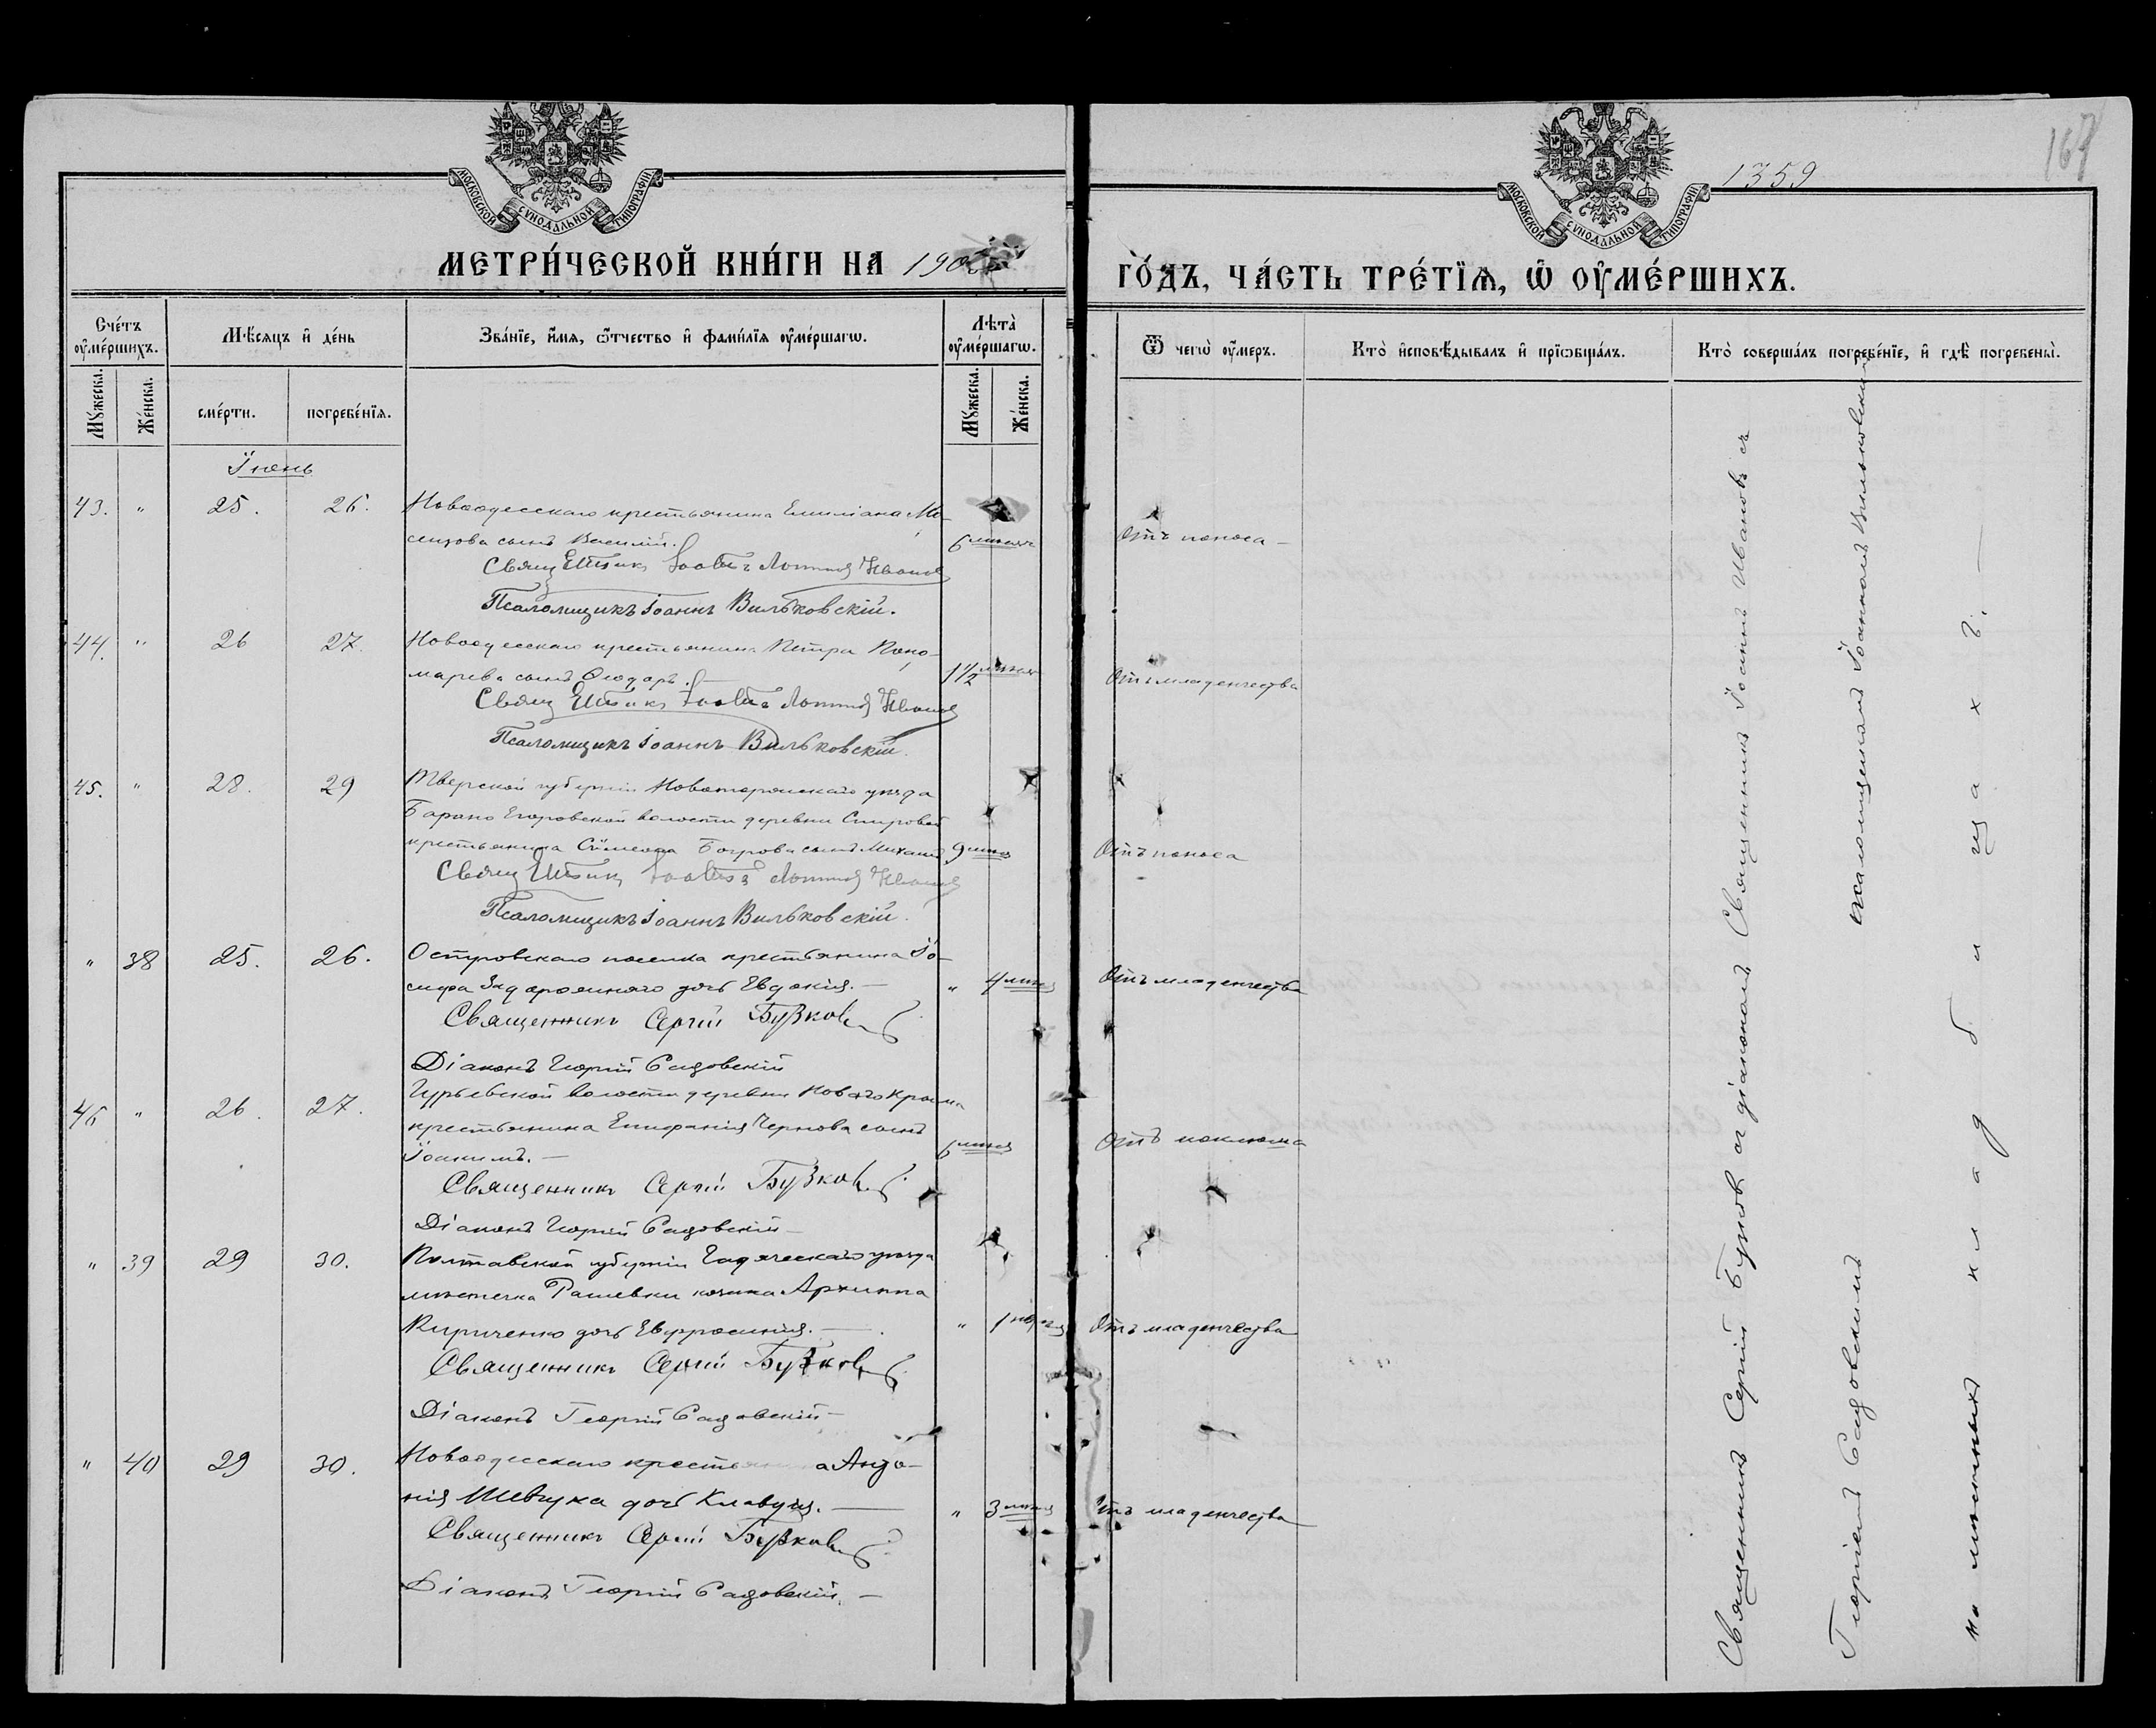 1359
167
МОСКОВСКОЙ СѴНОДАЛЬНОЙ ТИПОГРАФІИ
МОСКОВСКОЙ СѴНОДАЛЬНОЙ ТИПОГРАФІИ
МЕТРИ́ЧЕСКОЙ КНИ́ГИ НА 190
ГО́ДЪ, ЧА́СТЬ ТРЕ́ТІѦ, Ѡ҆ ОУ҆МЕ́РШИХЪ.
Сче́тъ оу҆ме́ршихъ.
Мѣ́сяцъ и҆ де́нь
Зва́нїе, и҆́мя, ѻ҆́тчество и҆ фами́лїя оу҆ме́ршагѡ.
Лѣ́та оу҆ме́ршагѡ.
Ѿ чегѡ̀ оу҆́меръ.
Кто̀ и҆сповѣ́дывалъ и҆ прїѡбща́лъ.
Кто̀ соверша́лъ погребе́нїе, и҆ гдѣ̀ погребены̀.
Мꙋ́жеска.
Же́нска.
сме́рти.
погребе́нїя.
Мꙋ́жеска.
Же́нска.
Іюнь
43. " 25. 26. Новоодесскаго крестьянина Емиліана
сынъ Василій. 6 Отъ поноса —
Іоаннъ Иванов
Псаломщикъ Іоаннъ Вильковскій.
44. " 26 27. Новоодесскаго крестьянина Петра Поно-
марева сынъ Ѳеодоръ. — 1 1/2 Отъ младенчества
Іоаннъ Иванов
Псаломщикъ Іоаннъ Вильковскій.
45. " 28. 29 Тверской губерніи Новоторжскаго уѣзда
Барано Егоровской волости деревни
крестьянина Сѵмеона сынъ Михаилъ 9 Отъ поноса
Іоаннъ Иванов
Псаломщикъ Іоаннъ Вильковскій.
" 38 25. 26. Островскаго поселка крестьянина Іо-
сифа дочь Евдокія. — " 4 Отъ младенчества
Священникъ Сергій Бужков
Діаконъ Георгій Садовскій
46 " 26. 27. Гурьевской волости деревни
крестьянина Епифанія Чернова сынъ 6 Отъ коклюша
Іоакимъ. —
Священникъ Сергій Бужков
Діаконъ Георгій Садовскій —
" 39 29 30. Полтавской губерніи Гадячскаго уѣзда
мѣстечка Рашевки козака Архиппа
Кириченко дочь Евфросинія. — " 1 Отъ младенчества
Священникъ Сергій Бужков
Діаконъ Георгій Садовскій —
" 40 29 30. Новоодесскаго крестьянина Анто-
нія Шевчука дочь Клавдія. — " 3 Отъ младенчества
Священникъ Сергій Бужков
Діаконъ Георгій Садовскій. —
Священникъ Сергій Бужков съ діакономъ Священникъ Іоаннъ Ивановъ съ
Георгіемъ Садовскимъ псаломщикомъ Іоанномъ Вильковскимъ
на мѣстныхъ кладбищахъ. —